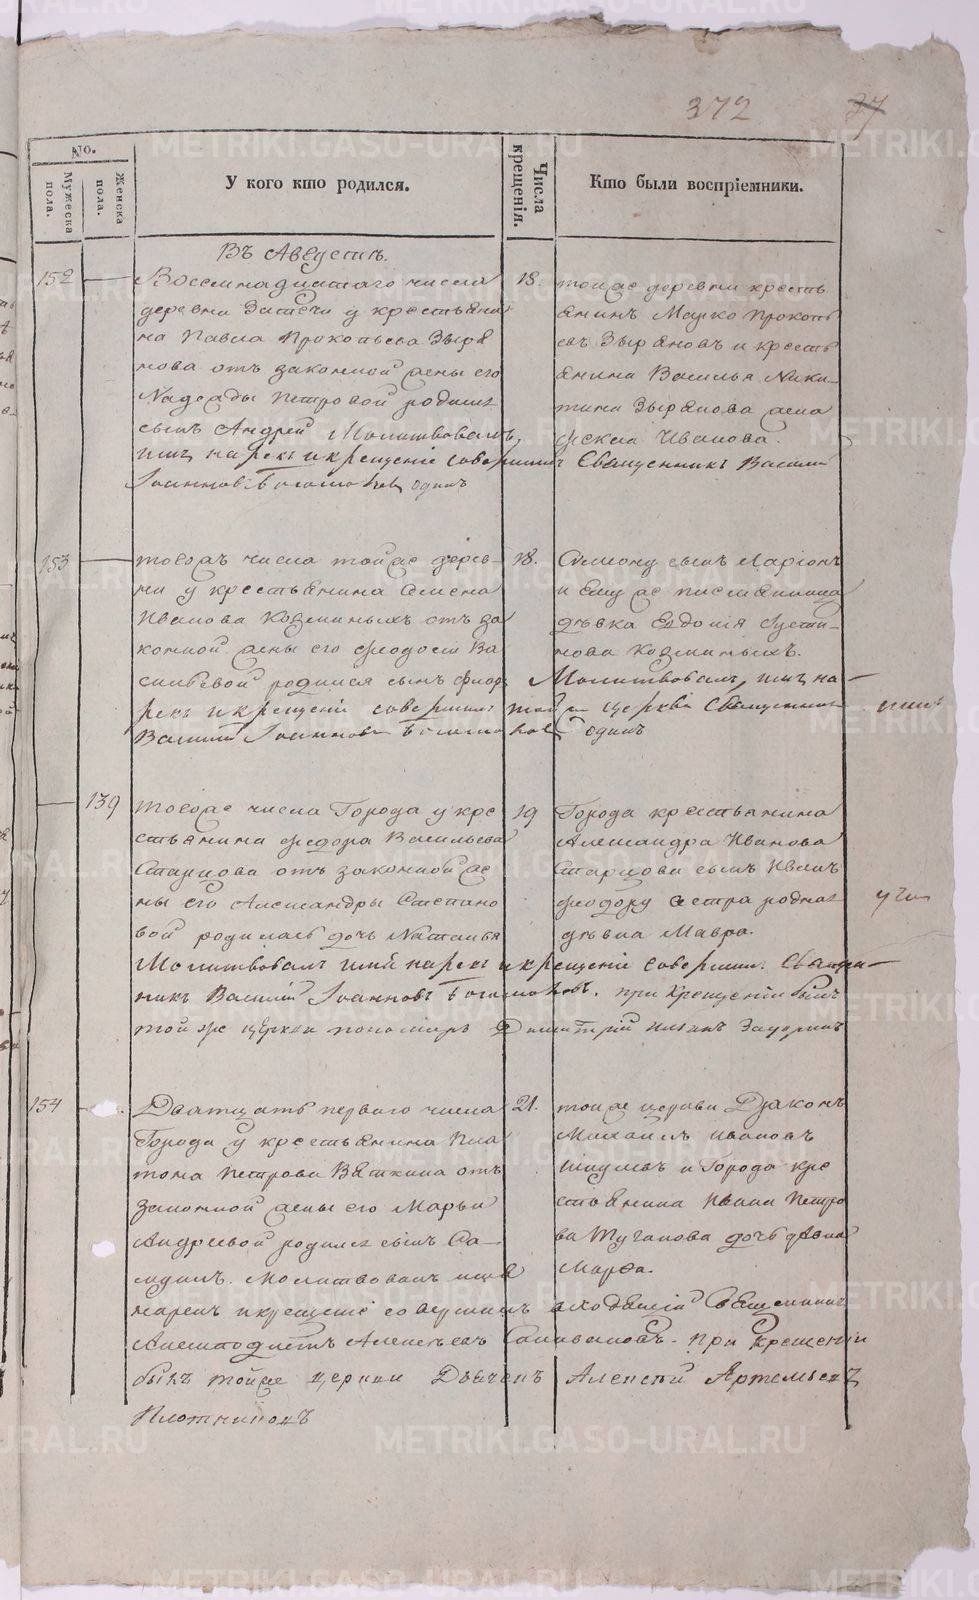 372
37
№.
Мужеска пола.
Женска пола.
У кого кто родился.
Числа крещенія.
Кто были воспріемники.
Въ Августѣ.
152
Восемнадцатаго числа
деревни у крестьяни
на Павла Прокопьева Зыря
нова отъ законной жены его
Надежды Петровой родился
сынъ Андрей Молитвовалъ,
имя нарекъ и крещеніе совершилъ Священникъ Василій
Іоанновъ Богомоловъ одинъ
18.
тойже деревни кресть
янинъ Марко Прокопь
евъ Зыряновъ и кресть
янина Василья Ники-
тина Зырянова жена
Иванова.
153
тогожъ числа тойже дерев-
ни у крестьянина
Иванова Козминыхъ отъ за
конной жены его Феодосіи Ва
сильевой родился сынъ
Молитвовалъ, имя на-
рекъ и крещеніе совершилъ тойже церкви Священникъ
Василій Іоанновъ Богомоловъ одинъ
18.
сынъ Ларіонъ
дѣвка Евдокія Густи-
нова Козминыхъ.
139
тогоже числа Города у кре
стьянина Федора Васильева
Старцова отъ законной же
ны его Александры Степано
вой родилась дочь Наталья
Молитвовалъ имя нарекъ и крещеніе совершилъ Священ-
никъ Василій Іоанновъ Богомоловъ. при крещеніи былъ
той же церкви пономарь Димитрій
19
Города крестьянина
Александра Иванова
Старцова сынъ Иванъ
Феодору сестра родная
дѣвка Мавра.
154
Дватцать перваго числа
Города у крестьянина Пла
тона Петрова Вяткина отъ
законной жены его Марьи
Андреевой родился сынъ Са-
Молитвовалъ имя
нарекъ и крещеніе совершилъ Священникъ
Алексѣевъ Селивановъ. При крещеніи
былъ тойже церкви Дьячекъ Алексѣй Артемьевъ
Плотниковъ
21.
тойже церкви Дьяконъ
Михаилъ Ивановъ
и Города кре
стьянина Ивана Петро
ва дочь дѣвка
Марѳа.
METRIKI.GASO-URAL.RU